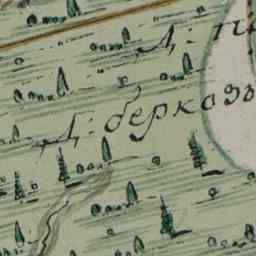 Д: п
Д: берказъ